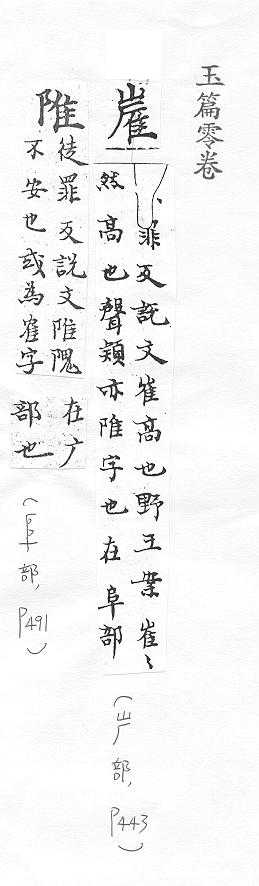 玉篇零卷
罪反說文崔高也野王案崔〻
然高也聲類亦陮字也在阜部
(屵部, P443)
陮
徒罪反說文陮隗 在广
不安也或為崔字 部也
(阜部, P491)